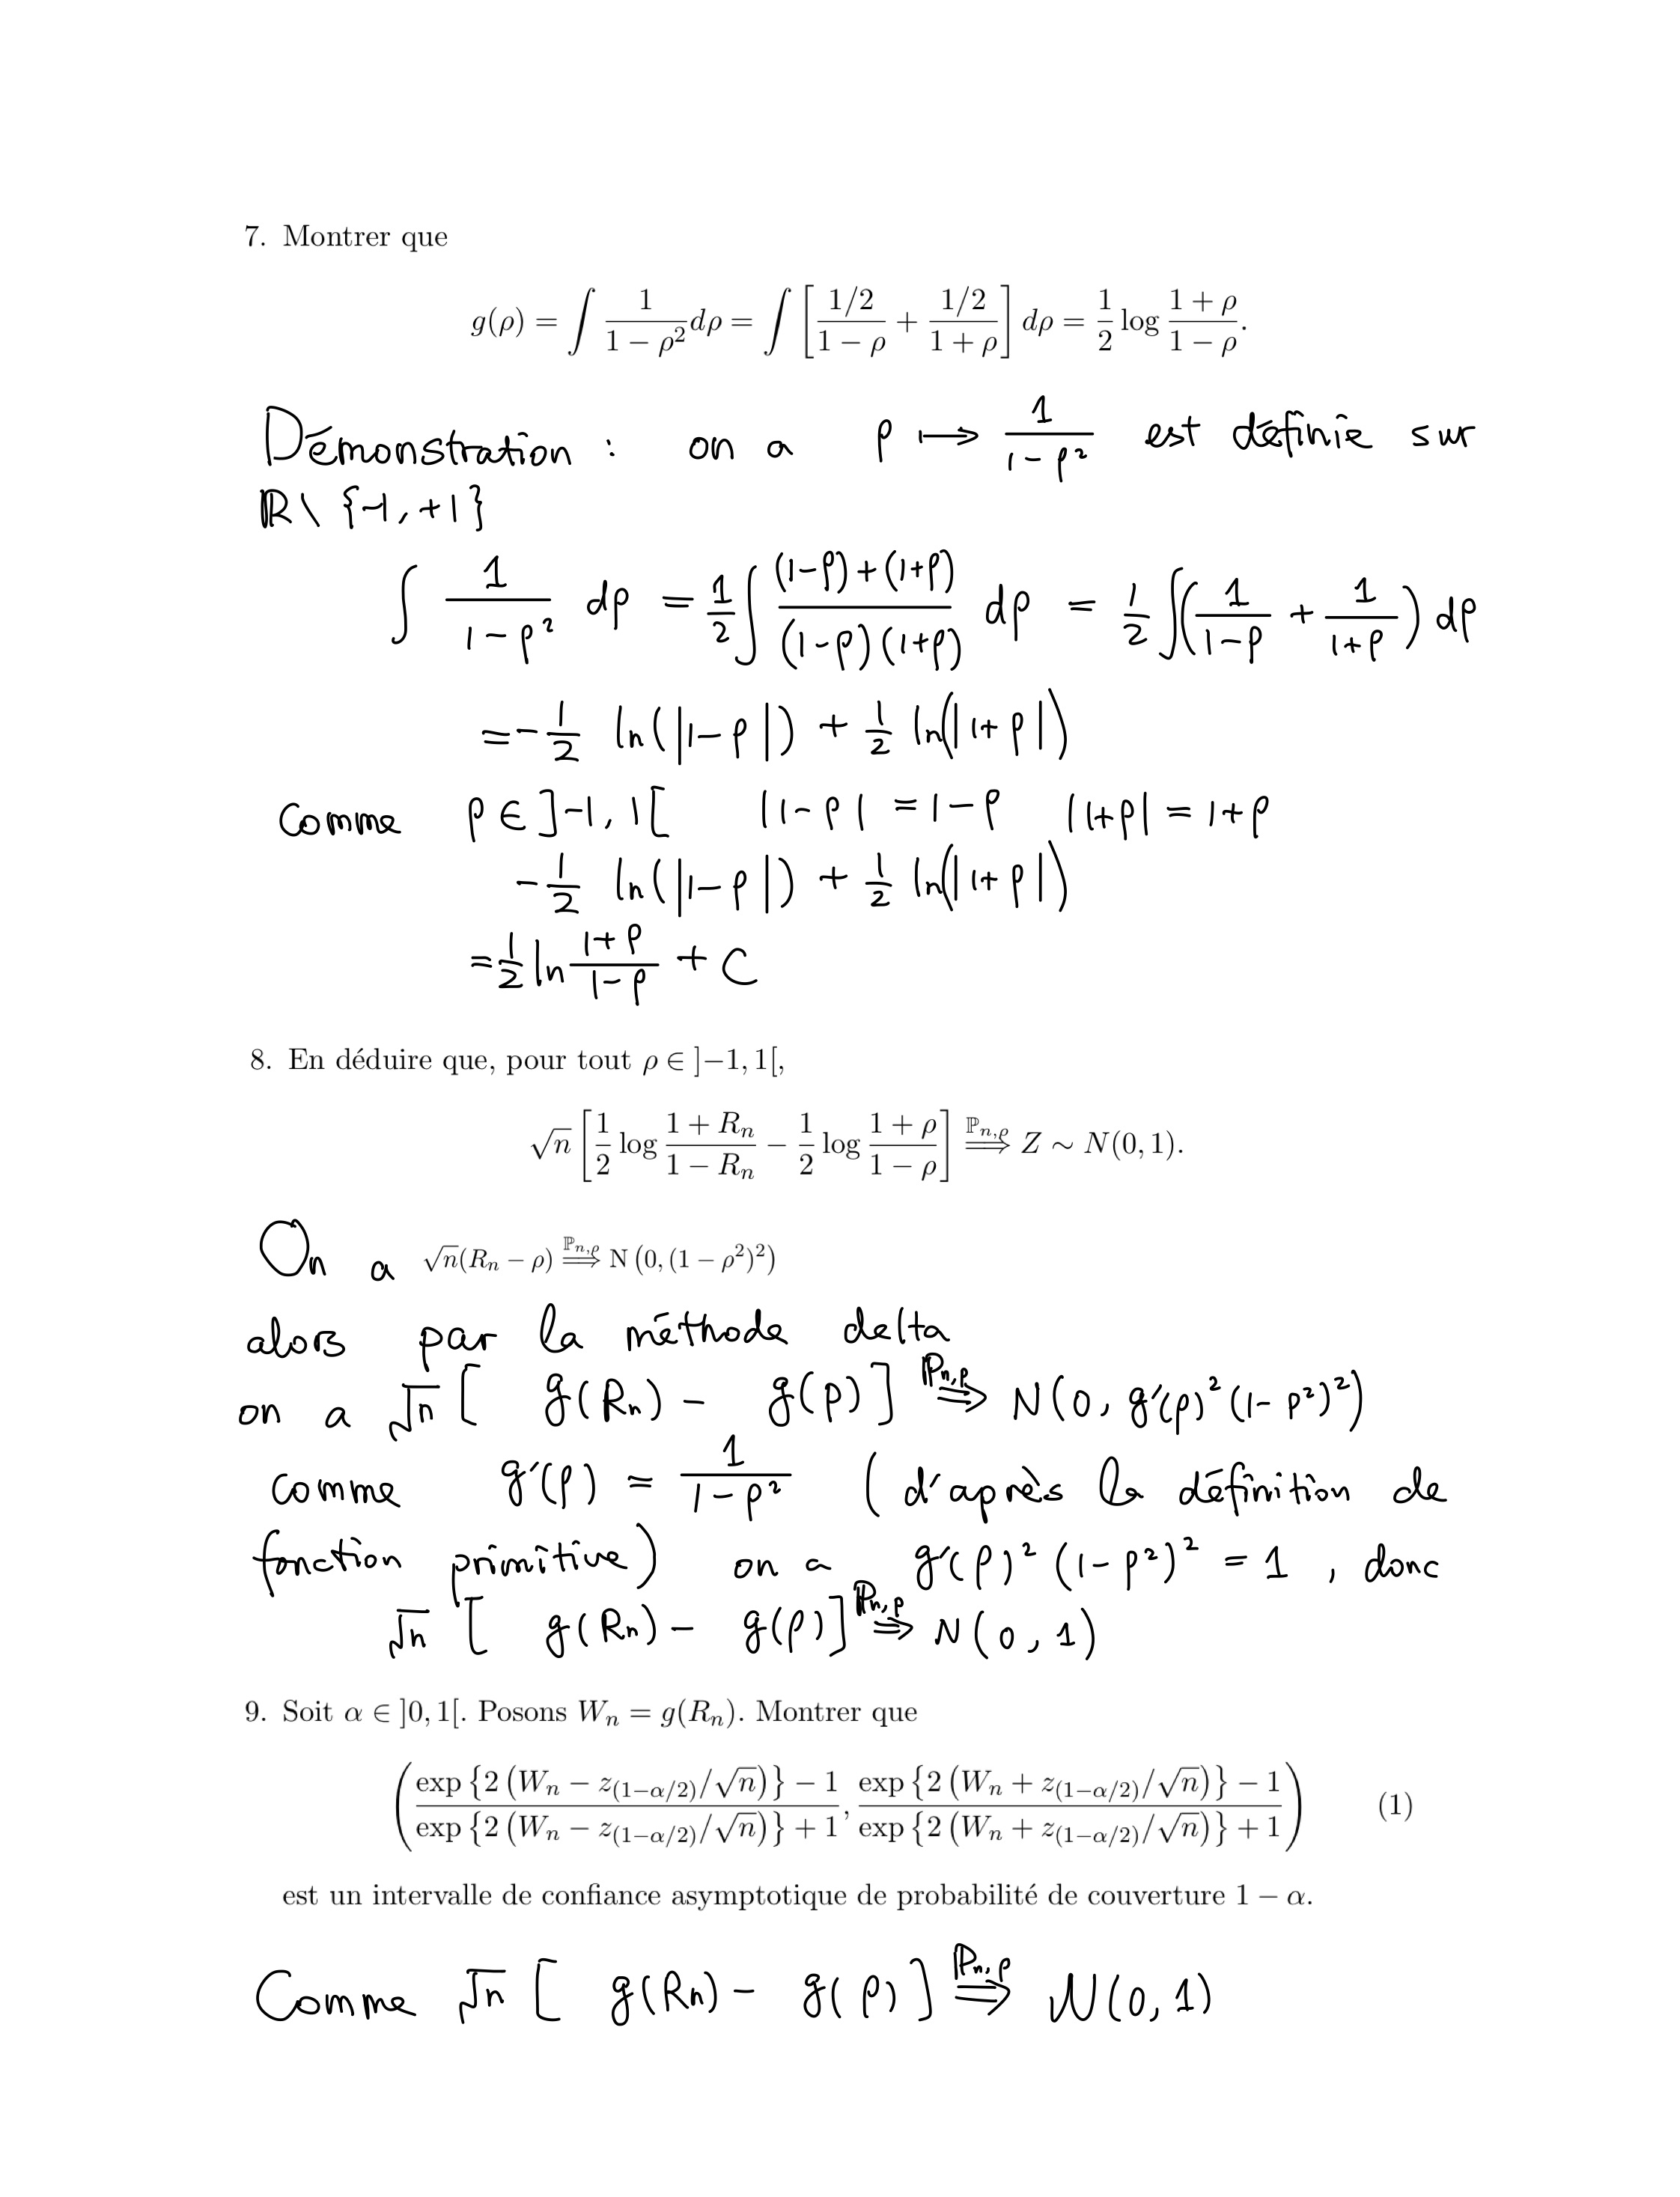 7. Montrer que
g(ρ) = ∫ 1/(1 − ρ²) dρ = ∫ [ (1/2)/(1 − ρ) + (1/2)/(1 + ρ) ] dρ = 1/2 log (1 + ρ)/(1 − ρ).
Démonstration : on a ρ ⟼ 1/(1−ρ²) est définie sur
ℝ\ {−1, +1}
∫ 1/(1−ρ²) dρ = 1/2 ∫ ((1−ρ)+(1+ρ))/((1−ρ)(1+ρ)) dρ = 1/2 ∫( 1/(1−ρ) + 1/(1+ρ) ) dρ
= − 1/2 ln(|1−ρ|) + 1/2 ln(|1+ρ|)
Comme ρ ∈ ]−1, 1[ |1−ρ| = 1−ρ |1+ρ| = 1+ρ
− 1/2 ln(|1−ρ|) + 1/2 ln(|1+ρ|)
= 1/2 ln (1+ρ)/(1−ρ) + C
8. En déduire que, pour tout ρ ∈ ]−1, 1[,
√n [ 1/2 log (1 + Rₙ)/(1 − Rₙ) − 1/2 log (1 + ρ)/(1 − ρ) ] ⟹^{ℙ_{n,ρ}} Z ∼ N(0, 1).
On a √n(Rₙ − ρ) ⟹^{ℙ_{n,ρ}} N (0, (1 − ρ²)²)
alors par la méthode delta
on a √n [ g(Rₙ) − g(ρ) ] ⟹^{ℙ_{n,ρ}} N(0, g′(ρ)² (1−ρ²)²)
comme g′(ρ) = 1/(1−ρ²) (d'après la définition de
fonction primitive) on a g′(ρ)² (1−ρ²)² = 1 , donc
√n [ g(Rₙ) − g(ρ) ] ⟹^{ℙ_{n,ρ}} N(0, 1)
9. Soit α ∈ ]0, 1[. Posons Wₙ = g(Rₙ). Montrer que
( (exp {2 (Wₙ − z_{(1−α/2)}/√n)} − 1)/(exp {2 (Wₙ − z_{(1−α/2)}/√n)} + 1), (exp {2 (Wₙ + z_{(1−α/2)}/√n)} − 1)/(exp {2 (Wₙ + z_{(1−α/2)}/√n)} + 1) ) (1)
est un intervalle de confiance asymptotique de probabilité de couverture 1 − α.
Comme √n [ g(Rₙ) − g(ρ) ] ⟹^{ℙ_{n,ρ}} N(0, 1)